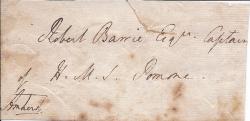 Robert Barrie Esqr. Captain
of H. M. S. Pomone.